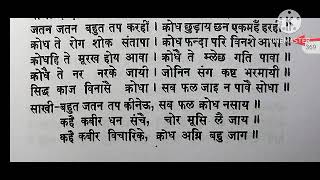 जतन जतन बहुत तप करहीं । क्रोध छुड़ाय छन एकमहँ हरहीं
क्रोध ते रोग शोक संतापा । क्रोध फन्दा परि विनशे आपा ॥
क्रोधहि ते मूरख होय आवा । क्रोधै ते म्लेछ गति पावा ॥
क्रोधै ते नर नरके जायी । जोनिन संग कष्ट भरमायी ॥
सिद्ध काज विनासै क्रोधा । सब फल जाइ न पावै सोधा ॥
साखी-बहुत जतन तप कीनेऊ, सब फल क्रोध नसाय ॥
कहैं कबीर धन संचै, चोर मूसि लै जाय ॥
कहैं कबीर विचारिके, क्रोध अग्नि बहु जाग ॥